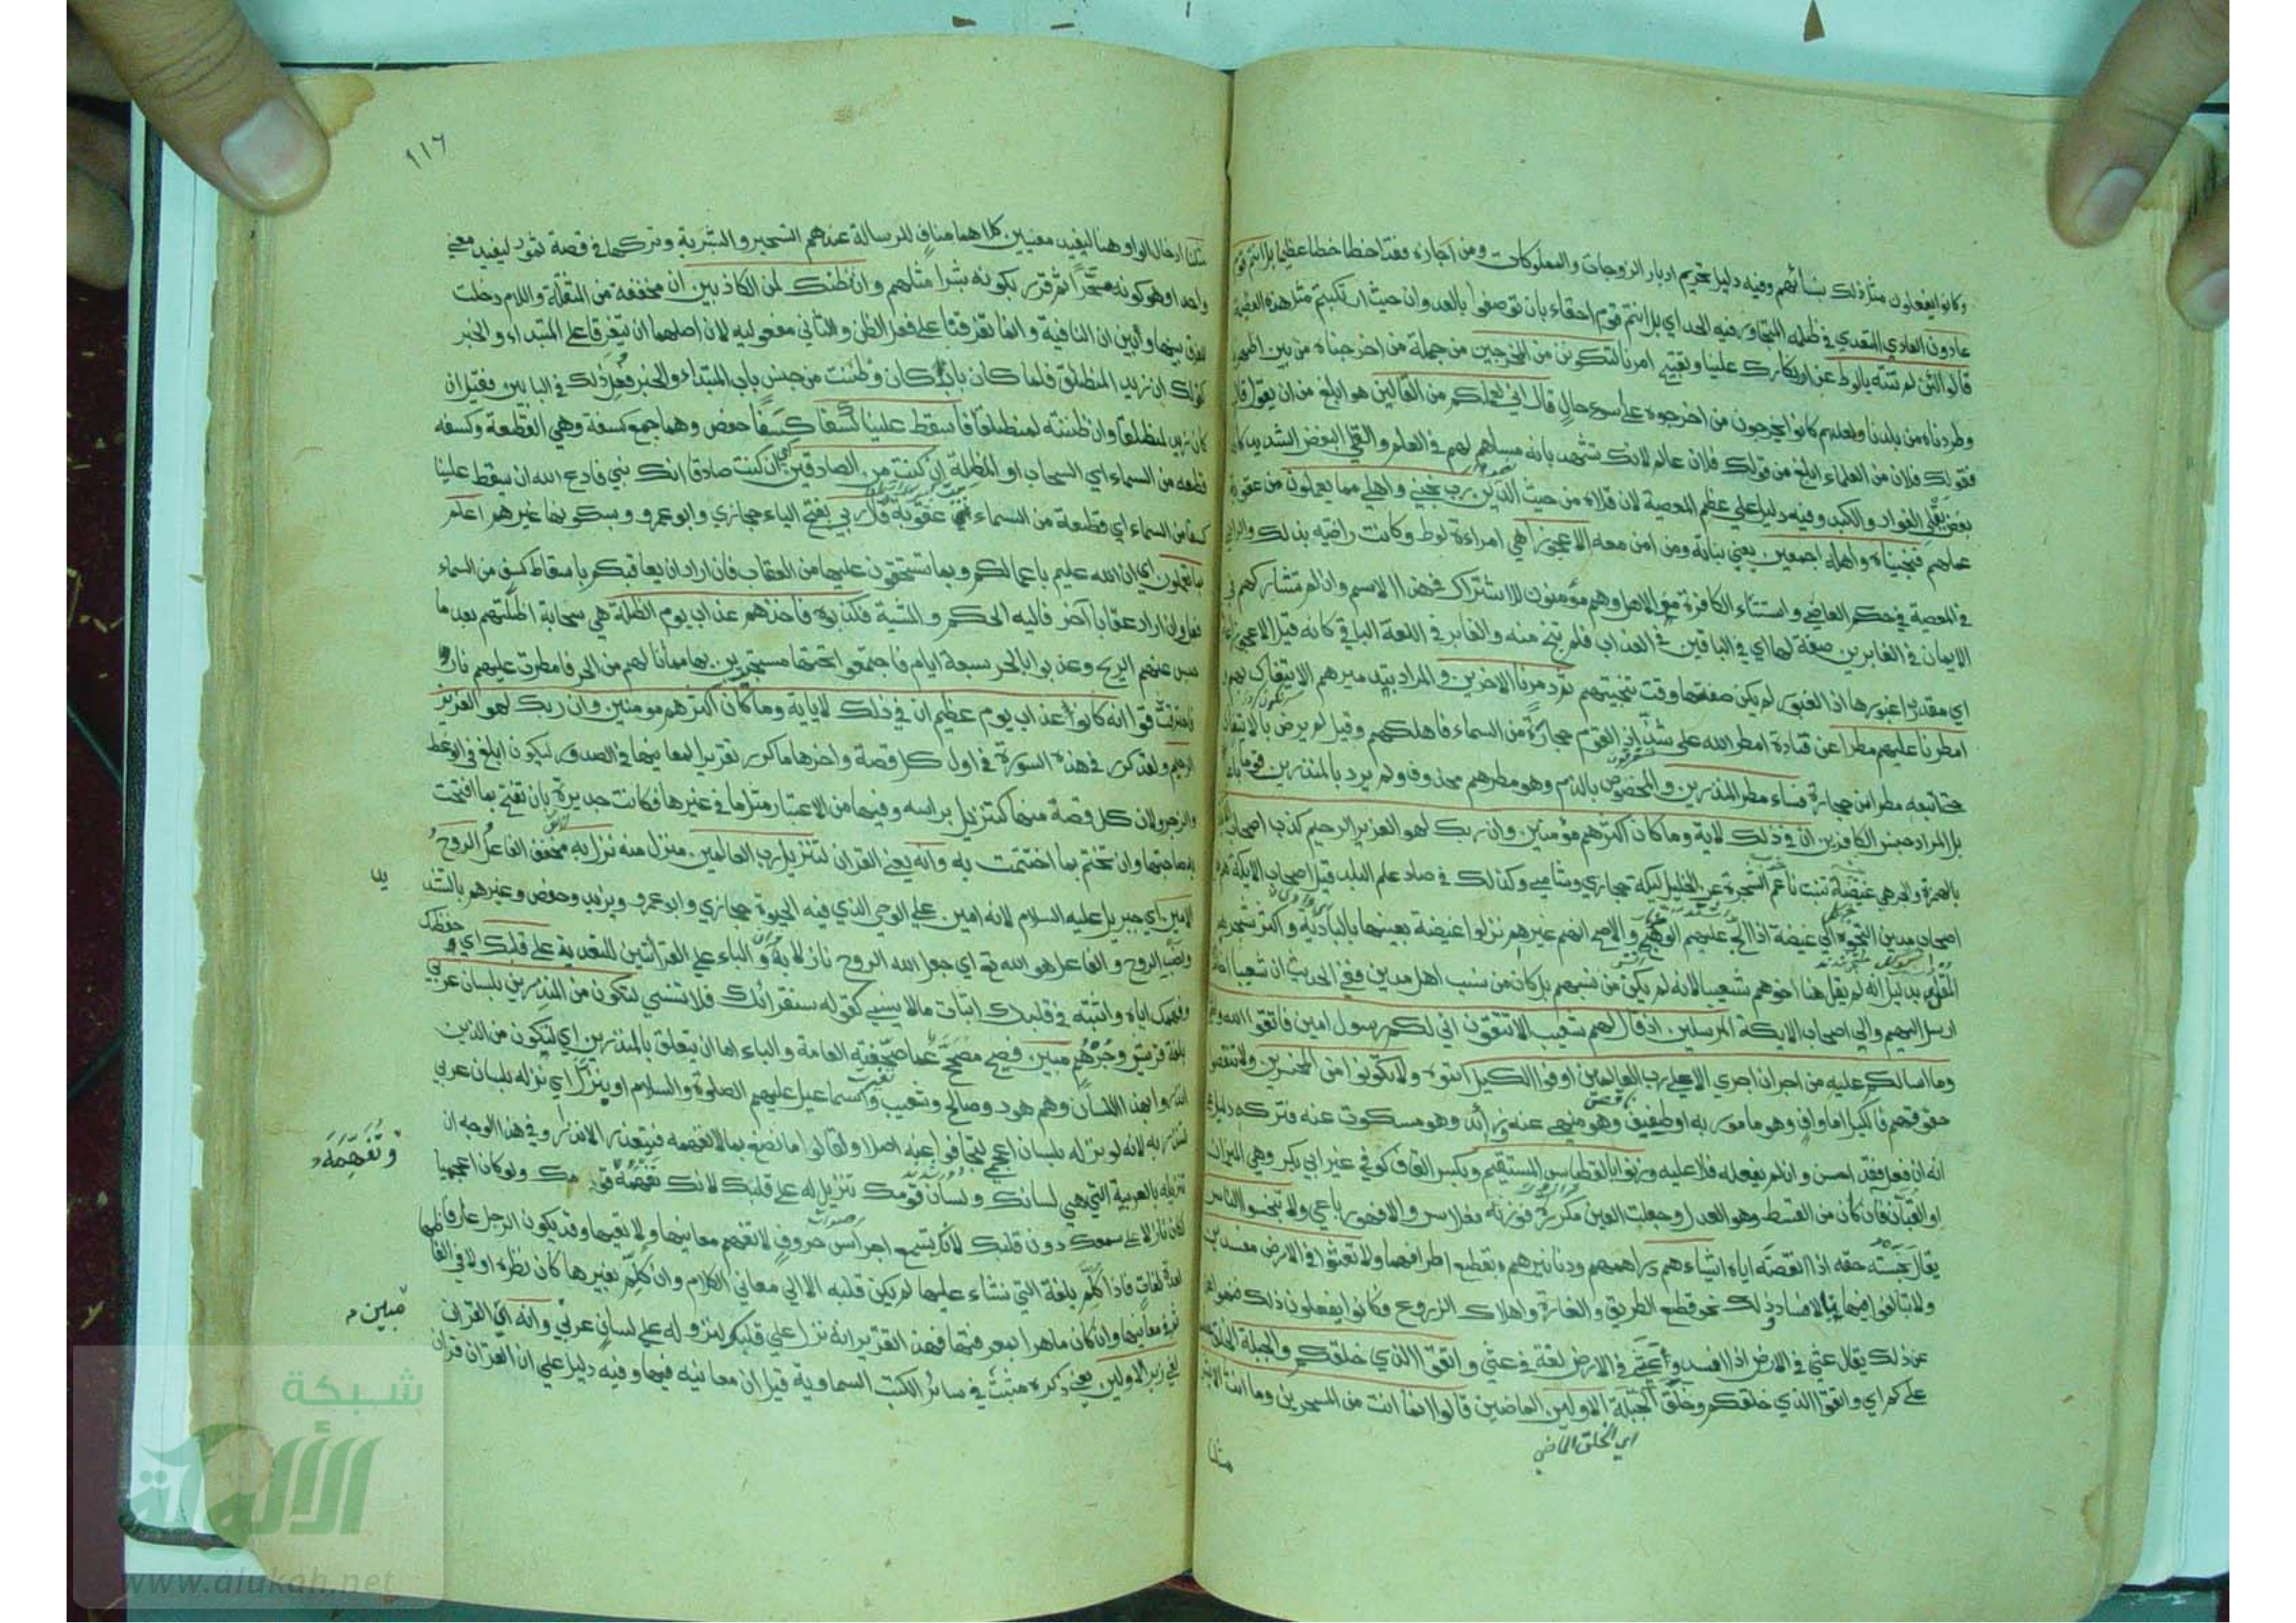 وكانوا يفعلون مثل ذلك بنسائهم وفيه دليل تحريم ادبار الزوجات والمملوكات ومن اجازه فقد اخطا خطا عظيما بل انتم قوم
عادون العادي المتعدي في ظلمه المتجاوز فيه الحد اي بل انتم قوم احقاء بان توصفوا بالعدوان حيث ارتكبتم مثل هذه العظيمة
قالوا لئن لم تنته يالوط عن انكارك علينا وتقبيح امرنا لتكونن من المخرجين من جملة من اخرجناه من بين اظهرنا
وطردناه من بلدنا ولعلهم كانوا يخرجون من اخرجوه على اسوء حال قال اني لعملكم من القالين هو ابلغ من ان يقول قال
فقولك فلان من العلماء ابلغ من قولك فلان عالم لانك تشهد بانه مساهم لهم في العلم والقلى البغض الشديد كانه
بغض يقلي الفواد والكبد وفيه دليل علي عظم المعصية لان قلاه من حيث الدين رب نجني واهلي مما يعملون من عقوبة
عملهم فنجيناه واهله اجمعين يعني بناته ومن امن معه الا عجوزا هي امراة لوط وكانت راضية بذلك والراضي
في المعصية في حكم العاصي واستثناء الكافرة من الاهل وهم مؤمنون للاشتراك في هذا الاسم وان لم تشاركهم في
الايمان في الغابرين صفة لها اي في الباقين في العذاب فلم تنج منه والغابر في اللغة الباقي كانه قيل الا عجوزا غابرة
اي مقدرا غبورها اذ الغبور لم يكن صفتها وقت تنجيتهم ثم دمرنا الاخرين والمراد بتدميرهم الايتفاك بهم
وامطرنا عليهم مطرا عن قتادة امطر الله على شذاذ القوم حجارة من السماء فاهلكهم وقيل لم يرض بالايتفاك
حتى اتبعه مطرا من حجارة فساء مطر المنذرين والمخصوص بالذم وهو مطرهم محذوف ولم يرد بالمنذرين قوما باعيانهم
بل المراد جنس الكافرين ان في ذلك لاية وما كان اكثرهم مؤمنين وان ربك لهو العزيز الرحيم كذب اصحاب الايكة
بالهمزة والجر هي غيضة تنبت ناعم الشجرة عن الخليل ليكة حجازي وشامي وكذلك في صاد علم البلد قيل اصحاب الايكة هم
اصحاب مدين التجؤا الي غيضة اذ الح عليهم الوهج والاصح انهم غيرهم نزلوا غيضة بعينها بالبادية واكثر شجرهم
المقل بدليل انه لم يقل هنا اخوهم شعيب لانه لم يكن من نسبهم بل كان من نسب اهل مدين ففي الحديث ان شعيبا اخا مدين
ارسل اليهم والي اصحاب الايكة المرسلين اذ قال لهم شعيب الا تتقون اني لكم رسول امين فاتقوا الله واطيعون
وما اسالكم عليه من اجر ان اجري الا على رب العالمين اوفوا الكيل اتموه ولا تكونوا من المخسرين ولا تنقصوا
حقوقهم فالكيل اما واف وهو مامور به او طفيف وهو منهي عنه او زائد وهو مسكوت عنه فتركه دليل علي
انه ان فعل فقد احسن وان لم يفعله فلا عليه وزنوا بالقسطاس المستقيم وبكسر القاف كوفي غير ابي بكر وهي الميزان
او القبان فان كان من القسط وهو العدل وجعلت العين مكررة فوزنه فعلاس والا فهو رباعي ولا تبخسوا الناس
يقال بخسته حقه اذا انقصته اياه اشياءهم دراهمهم ودنانيرهم بقطع اطرافهما ولا تعثوا في الارض مفسدين
ولا تبالغوا فيها بالافساد وذلك نحو قطع الطريق والغارة واهلاك الزروع وكانوا يفعلون ذلك فنهوا
عن ذلك يقال عثي في الارض اذا افسد وعثى في الارض لغة في عثي واتقوا الذي خلقكم والجبلة الخلقة
على كم اي واتقوا الذي خلقكم وخلق الجبلة الاولين الماضين قالوا انما انت من المسحرين وما انت الا بشر
اي الخلق الماضي
مثلنا
١١٦
مثلنا ادخال الواو هنا ليفيد معنيين كلاهما مناف للرسالة عندهم التسحير والبشرية وتركها في قصة ثمود ليفيد معني
واحدا وهو كونه مسحرا ثم قرر بكونه بشرا مثلهم وان نظنك لمن الكاذبين ان مخففة من المثقلة واللام دخلت
للفرق بينها وبين ان النافية وانما تفرقتا على فعل الظن والثاني مفعوليه لان اصلهما ان يتفرقا على المبتداء والخبر
كقولك ان زيد المنطلق فلما كان باب كان وظننت من جنس باب المبتداء والخبر فعل ذلك في البابين فقيل ان
كان زيد لمنطلقا وان ظننته لمنطلقا فاسقط علينا كسفا كسفا حفص وهما جمع كسفة وهي القطعة وكسفه
قطعه من السماء اي السحاب او المظلة ان كنت من الصادقين اي ان كنت صادقا انك نبي فادع الله ان يسقط علينا
كسفا من السماء اي قطعة من السماء عقوبة قال ربي بفتح الياء حجازي وابو عمرو وبسكونها غيرهم اعلم
بما تعملون اي ان الله عليم باعمالكم وبما تستحقون عليها من العقاب فان اراد ان يعاقبكم باسقاط كسف من السماء
فعل وان اراد عقابا آخر فاليه الحكم والمشية فكذبوه فاخذهم عذاب يوم الظلة هي سحابة اظلتهم بعد ما
حبس عنهم الريح وعذبوا بالحر سبعة ايام فاجتمعوا تحتها مستجيرين بها مما نالهم من الحر فامطرت عليهم نارا
فاحترقوا انه كان عذاب يوم عظيم ان في ذلك لاية وما كان اكثرهم مومنين وان ربك لهو العزيز
الرحيم ولقد كرر في هذه السورة في اول كل قصة واخرها ما كرر تقريرا لمعانيها في الصدور ليكون ابلغ في الوعظ
والزجر ولان كل قصة منها كتنزيل براسه وفيها من الاعتبار مثل ما في غيرها فكانت جديرة بان تفتح بما افتتحت
به صاحبتها وان تختم بما اختتمت به وانه يعني القران لتنزيل رب العالمين منزل منه نزل به مخفف الفاعل الروح
الامين اي جبريل عليه السلام لانه امين علي الوحي الذي فيه الحيوة حجازي وابو عمرو ويزيد وحفص وغيرهم بالتشد
يد
ونصب الروح والفاعل هو الله تع اي جعل الله الروح نازلا به والباء على القراتين للتعدية على قلبك اي حفظك
وفهمك اياه واثبته في قلبك اثبات ما لا ينسي كقوله سنقرئك فلا تنسى لتكون من المنذرين بلسان عربي
بلغة قريش وجرهم مبين فصيح مصحح عما صحفته العامة والباء اما ان يتعلق بالمنذرين اي لتكون من الذين
انذروا بهذا اللسان وهم هود وصالح وشعيب واسماعيل عليهم الصلوة والسلام او بنزل اي نزله بلسان عربي
لتنذر به لانه لو نزله بلسان اعجمي لتجافوا عنه اصلا ولقالوا ما نصنع بما لا نفهمه فيتعذر الانذار وفي هذا الوجه ان
تنزيله بالعربية التي هي لسانك ولسان قومك تنزيل له على قلبك لانك تفهمه قومك ولو كان اعجميا
وتفهمه
لكان نازلا على سمعك دون قلبك لانك تسمع اجراس حروف لا تفهم معانيها ولا تعيها وقد يكون الرجل عارفا
بعدة لغات فاذا كلم بلغة التي نشاء عليها لم يكن قلبه الا الي معاني الكلام وان كلم بغيرها كان نظره اولا في الفاظها
ثم في معانيها وان كان ماهرا بمعرفتها فهذا تقرير انه نزل علي قلبه لنزوله على لسان عربي وانه اي القران
مبين
لفي زبر الاولين يعني ذكره مثبت في سائر الكتب السماوية قيل ان معانيه فيها وفيه دليل علي ان القران قران
شبكة
الألوكة
www.alukah.net